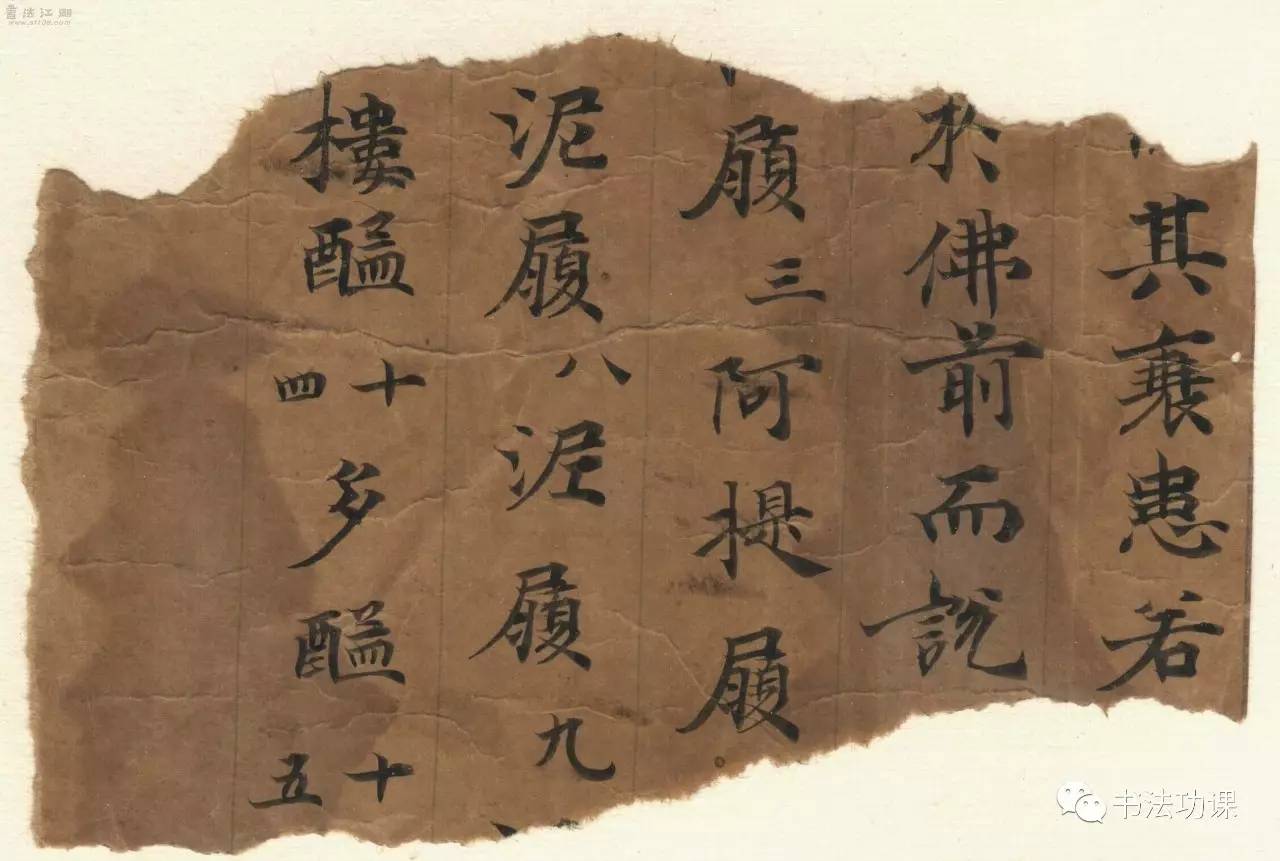 其衰患若
於佛前而說
履三阿提履
泥履八泥履九
樓醯十四多醯十五
書法江湖
www.sf108.com
书法功课